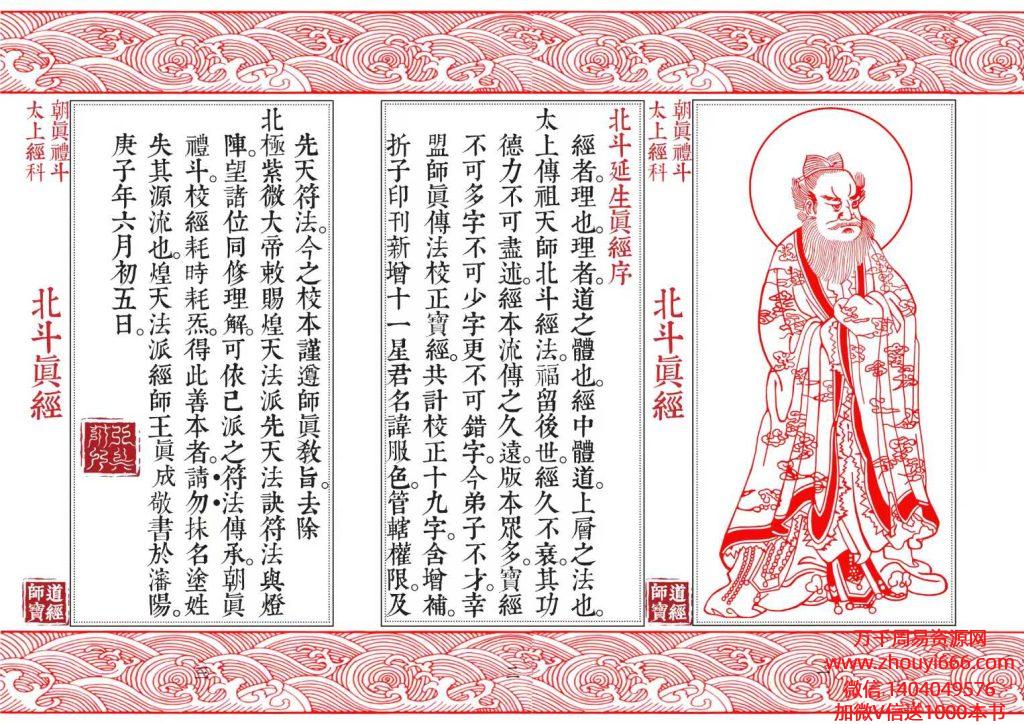 朝眞禮斗
太上經科
北斗眞經
道經
師寶
北斗延生眞經序
經者。理也。理者。道之體也。經中體道。上層之法也。
太上傳祖天師北斗經法。福留後世。經久不衰。其功
德力不可盡述。經本流傳之久遠。版本眾多。寶經
不可多字。不可少字。更不可錯字。今弟子不才。幸
盟師眞傳法。校正寶經。共計校正十九字。含增補。
折子印刊新增十一星君名諱服色。管轄權限。及
朝眞禮斗
太上經科
北斗眞經
道經
師寶
先天符法。今之校本。謹遵師眞敎旨。去除
北極紫微大帝敕賜煌天法派先天法訣符法與燈
陣。望諸位同修理解。可依己派之符法傳承。朝眞
禮斗。校經耗時耗炁。得此善本者。請勿抹名塗姓
失其源流也。煌天法派經師王眞成敬書於瀋陽。
庚子年六月初五日。
二
三
万千周易资源网
www.zhouyi666.com
微信 1404049576
加微V信送1000本书